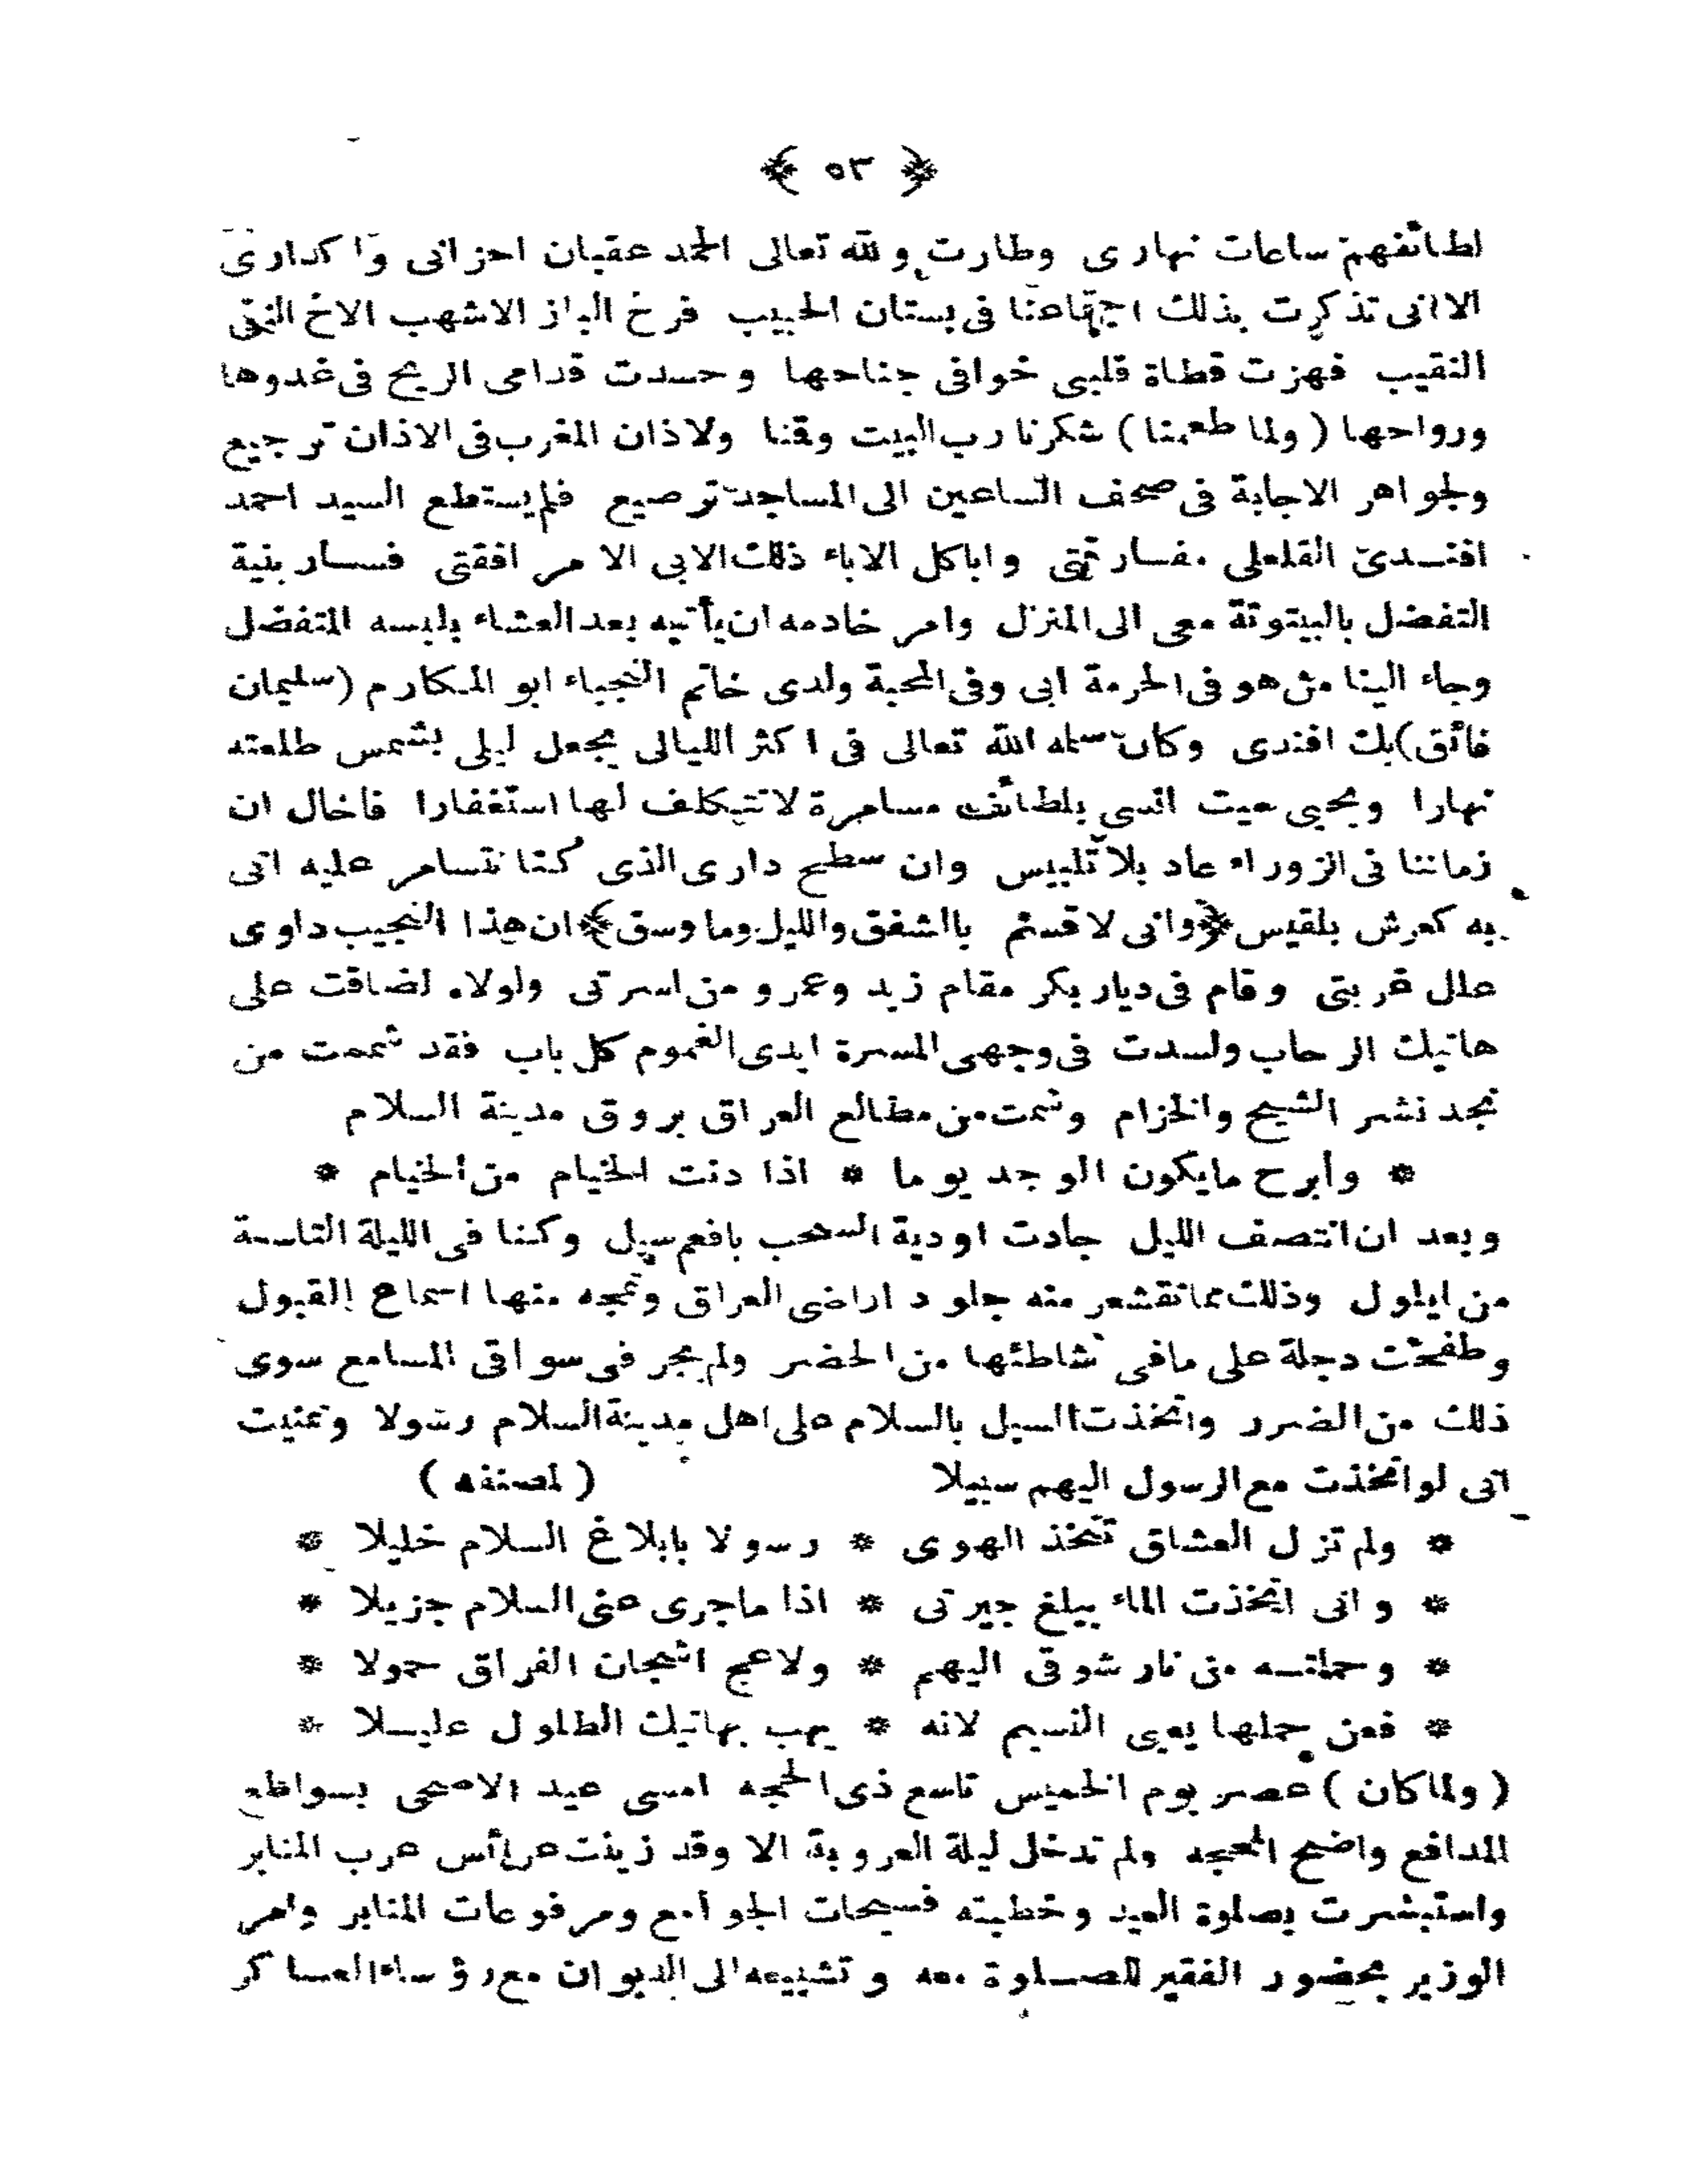 ﴿ ٥٣ ﴾
لطائفهم ساعات نهارى وطارت ولله تعالى الحمد عقبان احزانى واكدارى
الا انى تذكرت بذلك اجتماعنا فى بستان الحبيب فرخ الباز الاشهب الاخ النقى
النقيب فهزت قطاة قلبى خوافى جناحها وحسدت قدامى الريح فى غدوها
ورواحها ( ولما طعمنا ) شكرنا رب البيت وقنا ولاذان المغرب فى الاذان ترجيع
ولجواهر الاجابة فى صحف الساعين الى المساجد ترصيع فلم يستطع السيد احمد
افندى القلعلى مفارقتى واباكل الاباء ذلك الابى الا مرافقتى فسار بنية
التفضل بالبيتوتة معى الى المنزل وامر خادمه ان يأتيه بعد العشاء بلبسه المتفضل
وجاء الينا من هو فى الحرمة ابى وفى المحبة ولدى خاتم النجباء ابو المكارم (سليمان
فائق) بك افندى وكان سلمه الله تعالى فى اكثر الليالى يجعل ليلى بشمس طلعته
نهارا ويحيى ميت انسى بلطائف مسامرة لا تتكلف لها استغفارا فاخال ان
زماننا فى الزوراء عاد بلا تلبيس وان سطح دارى الذى كنا نتسامر عليه اتى
به كعرش بلقيس ﴿ وانى لا قسم باالشفق والليل وما وسق ﴾ ان هذا النجيب داوى
علل غربتى وقام فى ديار بكر مقام زيد وعمرو من اسرتى ولولاه لضاقت على
هاتيك الرحاب ولسدت فى وجهى المسرة ايدى الغموم كل باب فقد شممت من
نجد نشر الشيح والخزام وشمت من مطالع العراق بروق مدينة السلام
* وأبرح مايكون الوجد يوما * اذا دنت الخيام من الخيام *
وبعد ان انتصف الليل جادت اودية السحب بافعم سيل وكنا فى الليلة التاسعة
من ايلول وذلك مما تقشعر منه جلود اراضى العراق وتمجه منها اسماع القبول
وطفحت دجلة على مافى شاطئها من الخضر ولم يجر فى سواقى المسامع سوى
ذلك من الضرر واتخذت السيل بالسلام على اهل مدينة السلام رسولا وتمنيت
انى لو اتخذت مع الرسول اليهم سبيلا ( لمصنفه )
* ولم تزل العشاق تتخذ الهوى * رسولا بابلاغ السلام خليلا *
* وانى اتخذت الماء يبلغ جيرتى * اذا ماجرى عنى السلام جزيلا *
* وحملته من نار شوقى اليهم * ولاعج اشجان الفراق حمولا *
* فعن حملها يعيى النسيم لانه * يهب بهاتيك الطلول عليلا *
( ولما كان ) عصر يوم الخميس تاسع ذى الحجه امسى عيد الاضحى بسواطع
المدافع واضح المحجه ولم تدخل ليلة العروبة الا وقد زينت عرائس عرب المنابر
واستبشرت بصلوة العيد وخطبته فسيحات الجوامع ومرفوعات المنابر وامر
الوزير بحضور الفقير للصلوة معه وتشييعه الى الديوان مع رؤساء العساكر